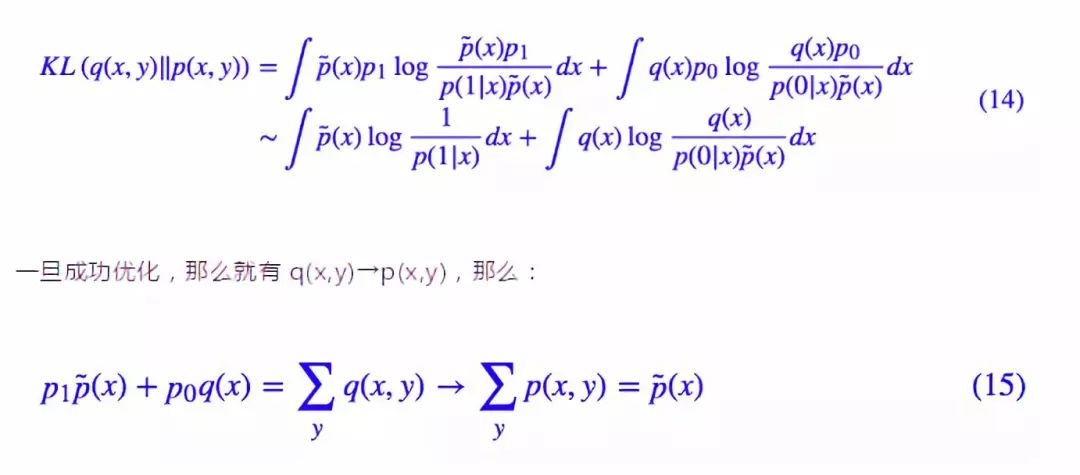 KL (q(x, y)||p(x, y)) = ∫ p̃(x)p₁ log p̃(x)p₁ / p(1|x)p̃(x) dx + ∫ q(x)p₀ log q(x)p₀ / p(0|x)p̃(x) dx
(14)
∼ ∫ p̃(x) log 1 / p(1|x) dx + ∫ q(x) log q(x) / p(0|x)p̃(x) dx
一旦成功优化，那么就有 q(x,y)→p(x,y)，那么：
p₁p̃(x) + p₀q(x) = ∑_y q(x, y) → ∑_y p(x, y) = p̃(x) (15)